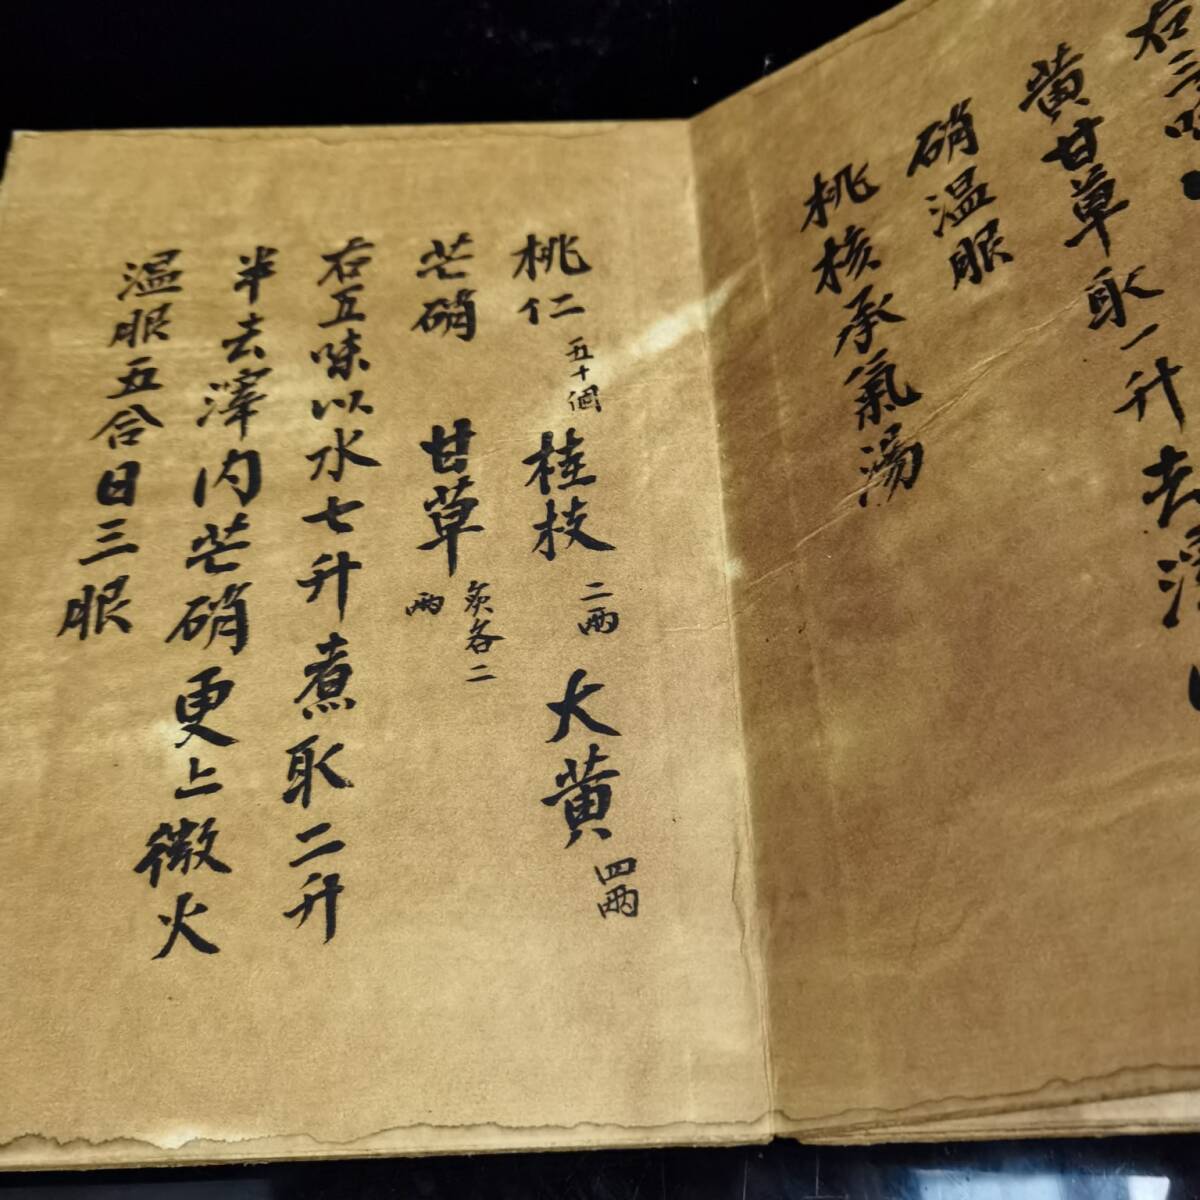 右三味
黄甘草取一升去滓
硝温服
桃核承氣湯
桃仁五十個桂枝二兩大黄四兩
芒硝甘草炙各二兩
右五味以水七升煮取二升
半去滓内芒硝更上微火
温服五合日三服